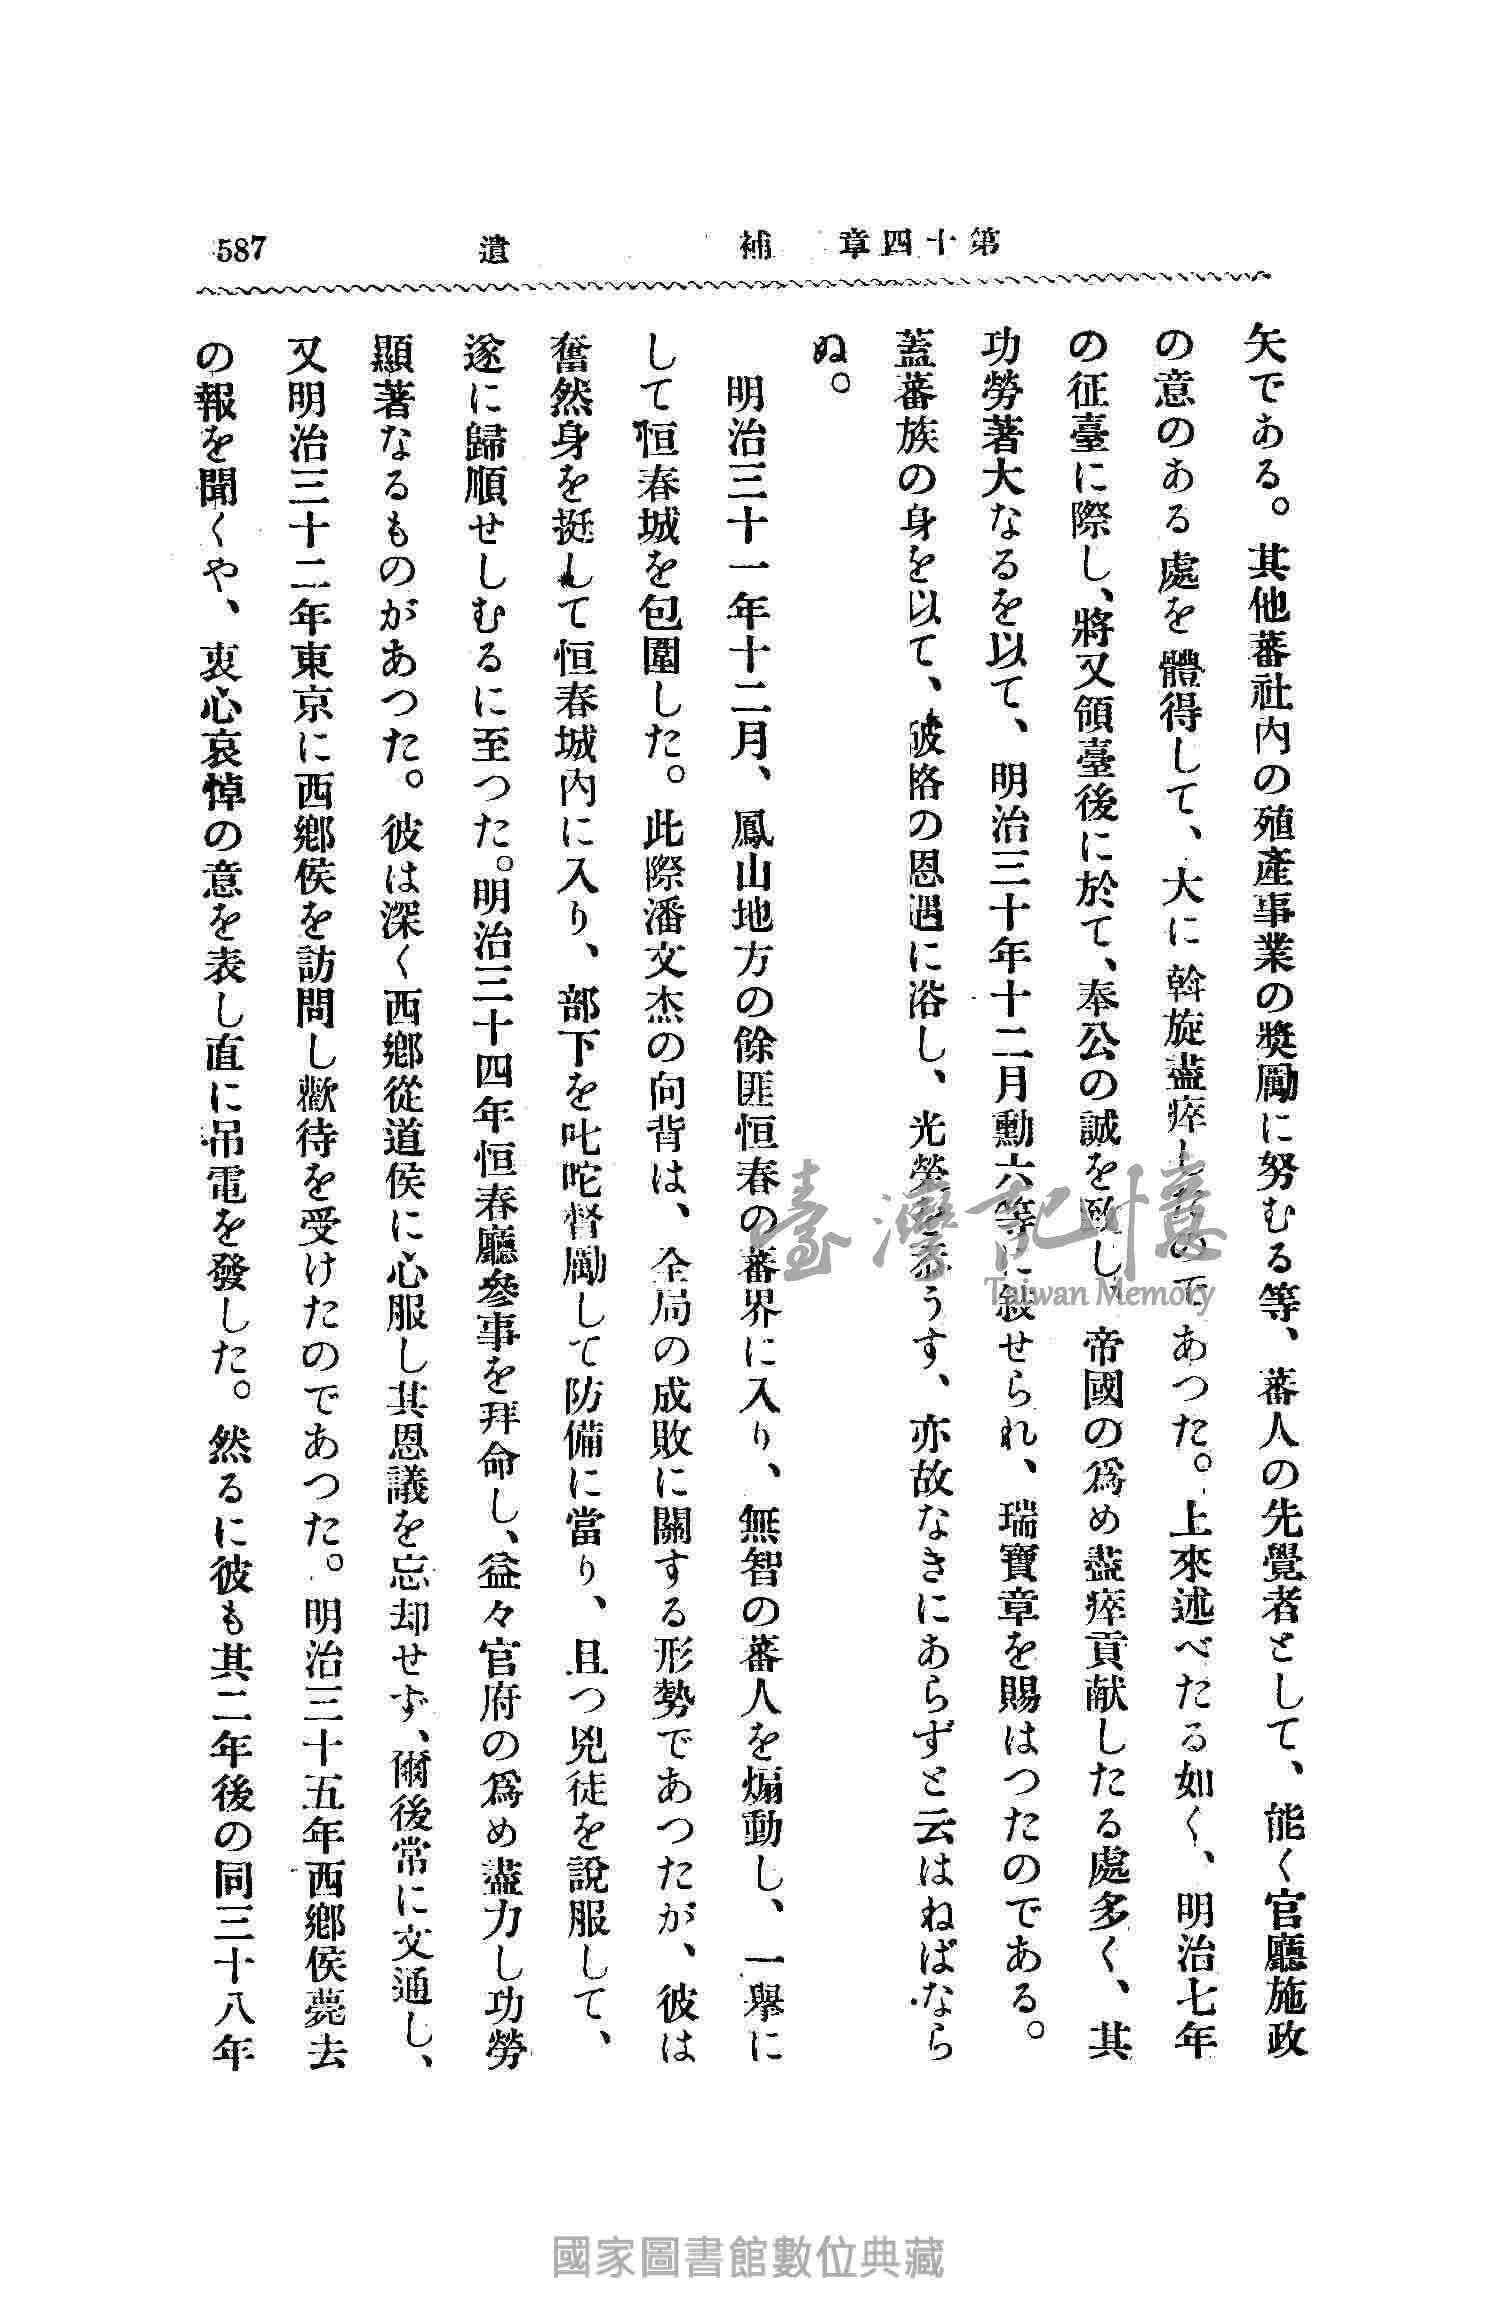 第十四章　補　遺　587
矢である。其他蕃社內の殖產事業の獎勵に努むる等、蕃人の先覺者として、能く官廳施政
の意のある處を體得して、大に斡旋盡瘁したのであつた。上來述べたる如く、明治七年
の征臺に際し、將又領臺後に於て、奉公の誠を致し、帝國の爲め盡瘁貢献したる處多く、其
功勞著大なるを以て、明治三十年十二月勳六等に敍せられ、瑞寶章を賜はつたのである。
蓋蕃族の身を以て、破格の恩遇に浴し、光榮を忝うす、亦故なきにあらずと云はねばなら
ぬ。
明治三十一年十二月、鳳山地方の餘匪恒春の蕃界に入り、無智の蕃人を煽動し、一擧に
して恒春城を包圍した。此際潘文杰の向背は、全局の成敗に關する形勢であつたが、彼は
奮然身を挺して恒春城內に入り、部下を叱咤督勵して防備に當り、且つ兇徒を說服して、
遂に歸順せしむるに至つた。明治三十四年恒春廳參事を拜命し、益々官府の爲め盡力し功勞
顯著なるものがあつた。彼は深く西鄕從道侯に心服し其恩議を忘却せず、爾後常に文通し、
又明治三十二年東京に西鄕侯を訪問し歡待を受けたのであつた。明治三十五年西鄕侯薨去
の報を聞くや、衷心哀悼の意を表し直に吊電を發した。然るに彼も其二年後の同三十八年
臺灣記憶
Taiwan Memory
國家圖書館數位典藏